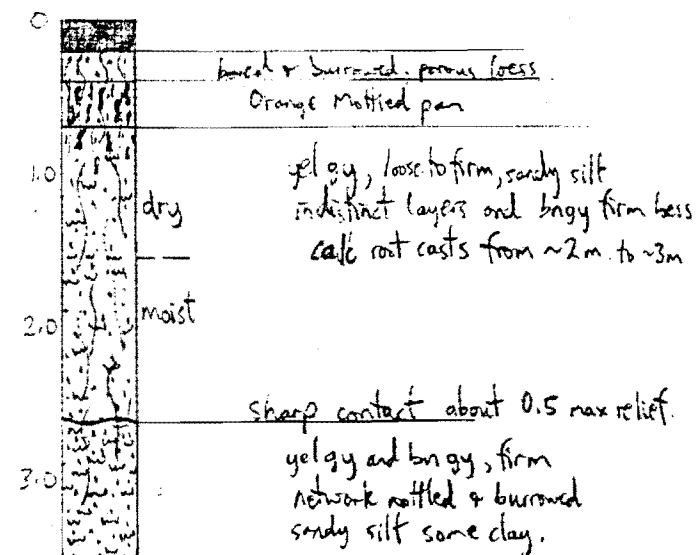 0
bored & burrowed. porous loess
Orange Mottled pan
1.0
yel gy, loose to firm, sandy silt
dry
indistinct layers and bngy firm loess
calc root casts from ~2m. to ~3m
moist
2.0
sharp contact about 0.5 max relief.
yel gy and bn gy, firm
3.0
network mottled & burrowed
sandy silt some clay.